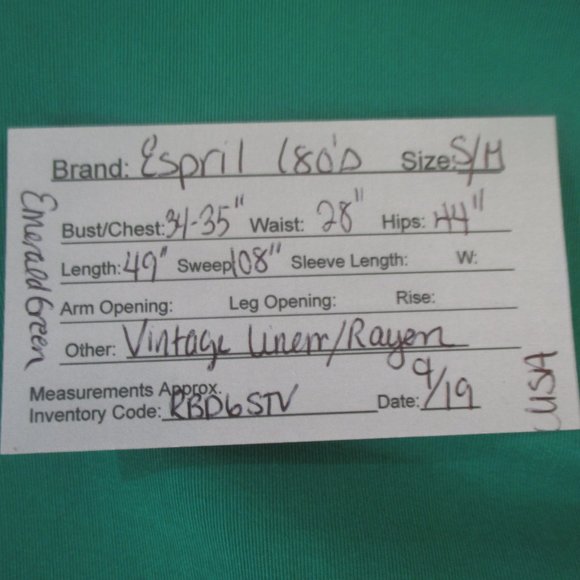 Brand: Espril 180's Size: S/M
Bust/Chest: 34-35" Waist: 28" Hips: 44"
Length: 49" Sweep 108" Sleeve Length: W:
Arm Opening: Leg Opening: Rise:
Other: Vintage Linen/Rayon
Measurements Approx.
Inventory Code: RBD6STV Date: 9/19
Emerald Green
USA